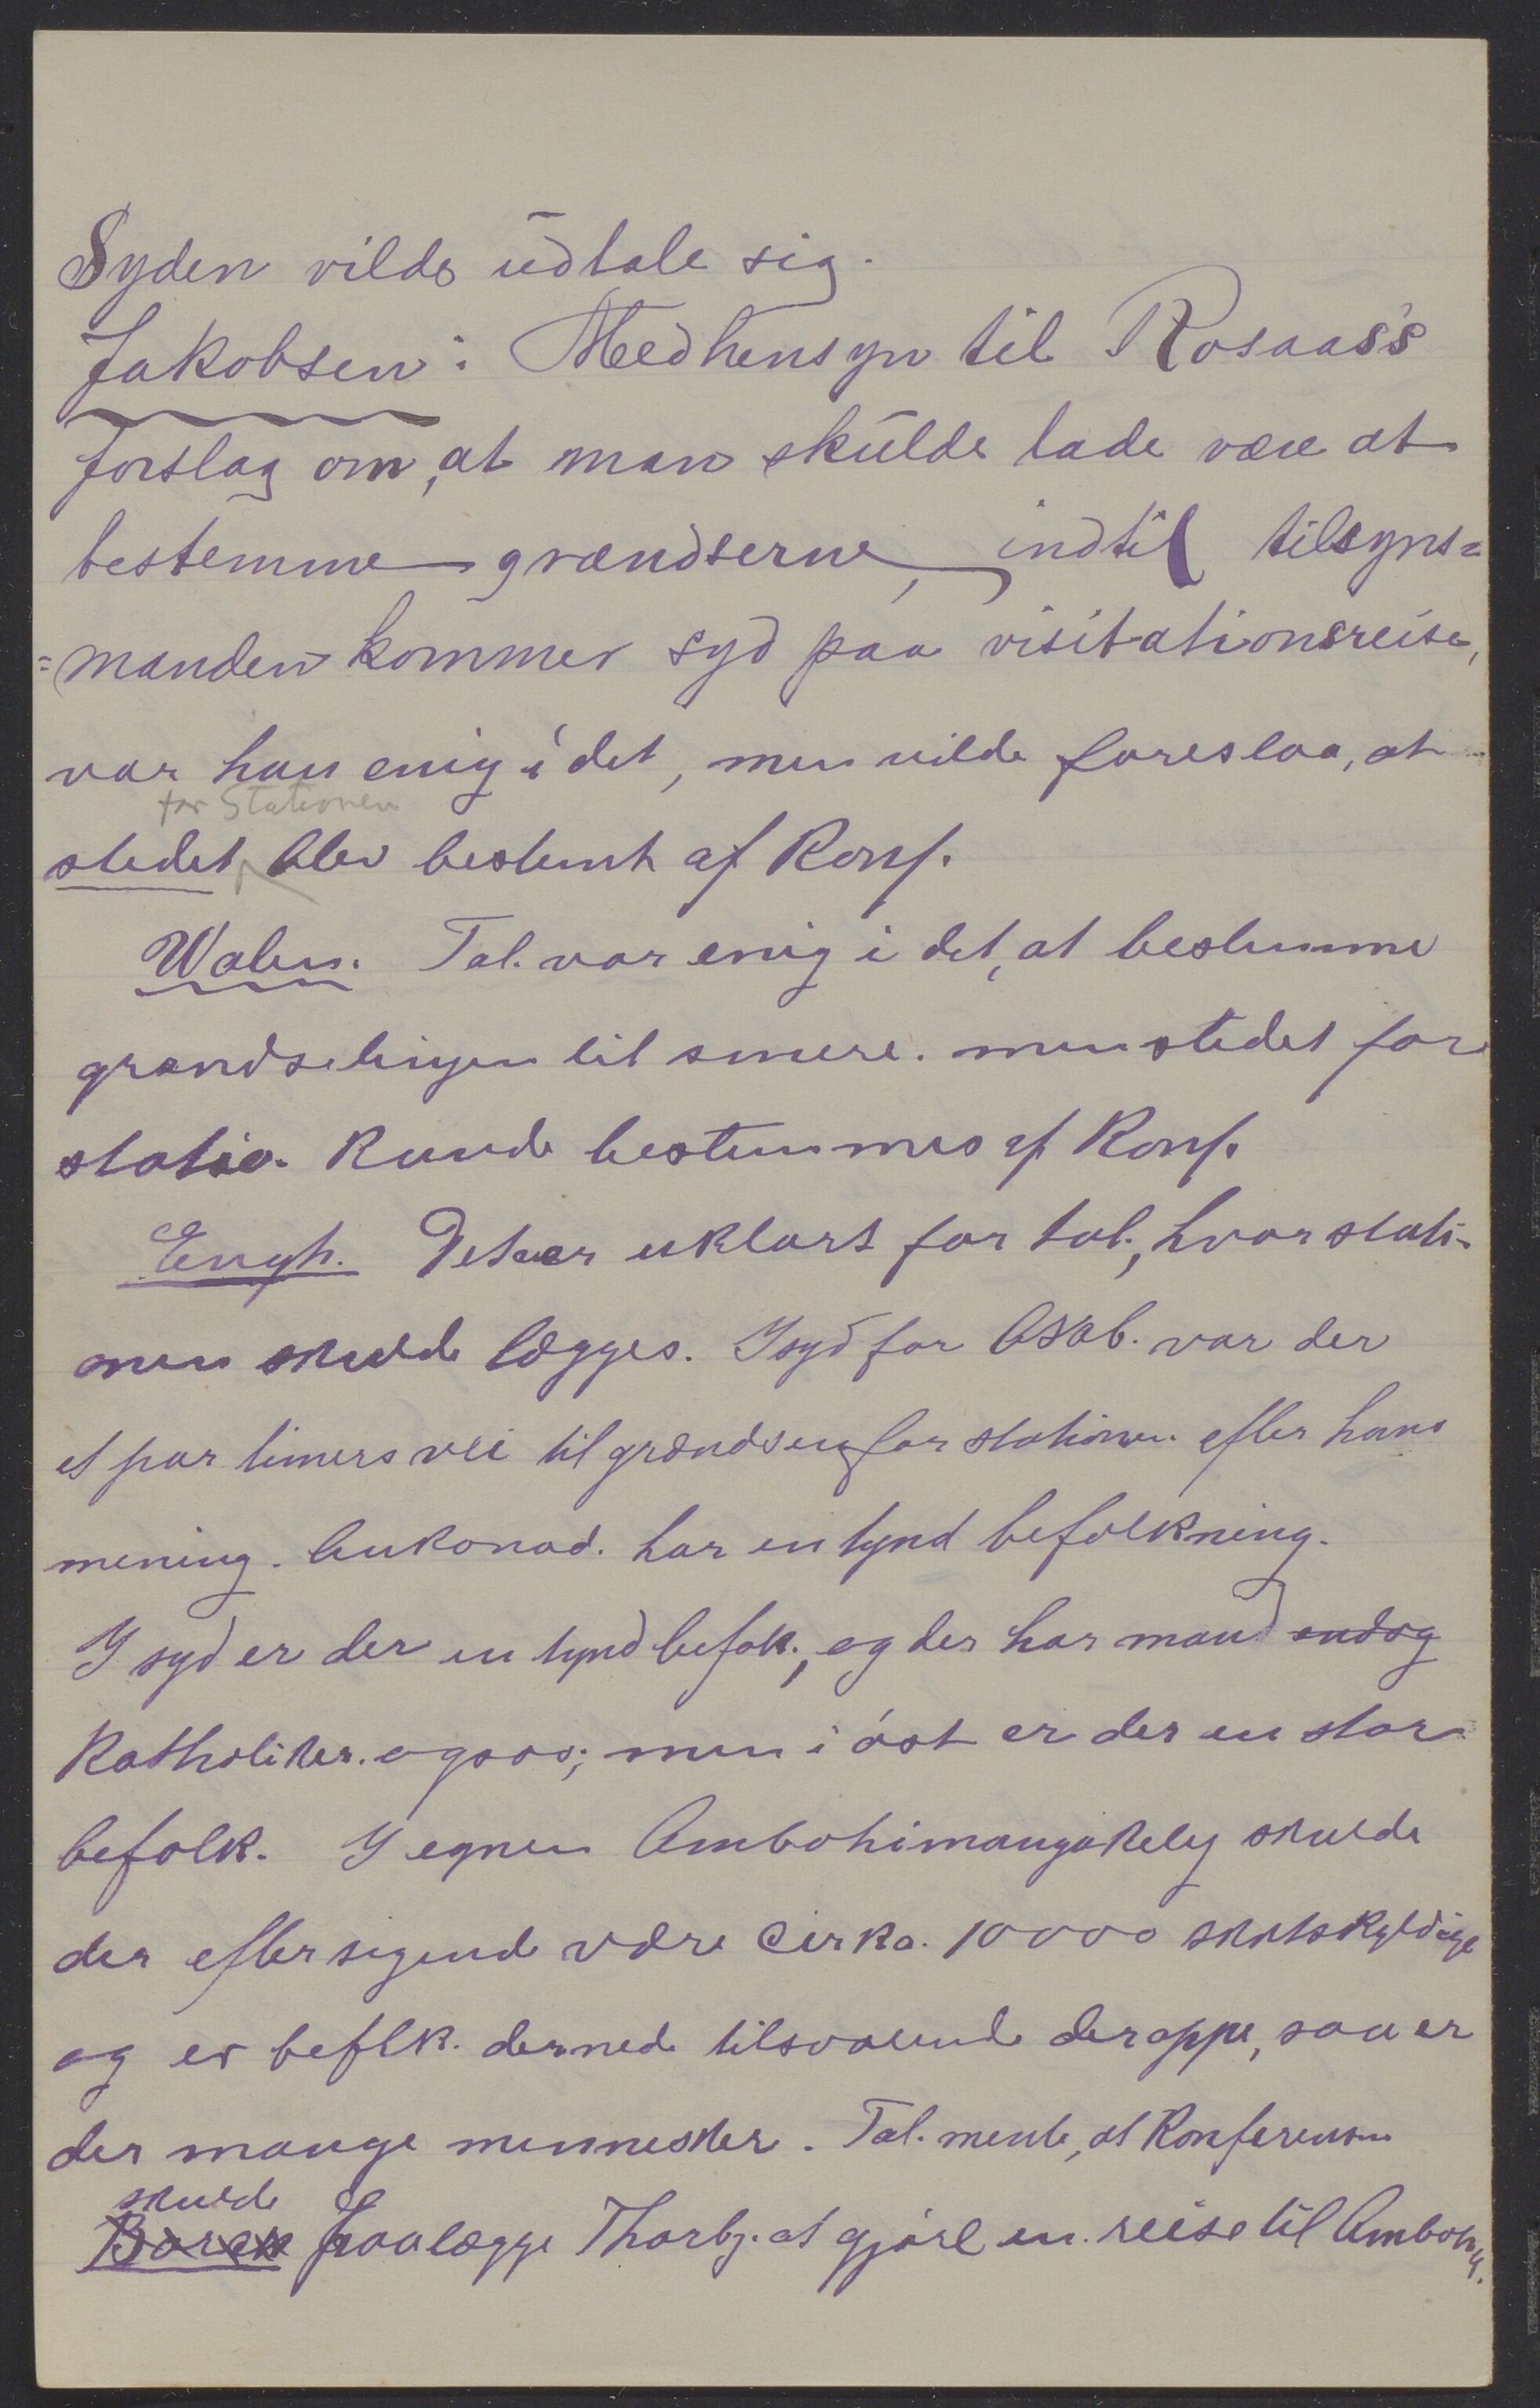 Syden vilde udtale sig.
Jakobsen: Medhensyn til Rosaas's
forslag om, at man skulde lade være at
bestemme grændserne, indtil tilsyns=
=manden kommer syd paa visitationsreise,
var han enig i det, men vilde foreslaa, at
for Stationen
stedet blev bestemt af Konf.
Walen. Tal. var enig i det, at bestemme
grændselinjen til senere. men stedet for
statio. kunde bestemmes af Konf.
Engh. Det er uklart for tal., hvor stati-
onen skulde lægges. I syd for Asab. var der
et par timers vei til grændsen for stationen efter hans
mening. Ankonad. har en tynd befolkning.
I syd er der en tynd befolk., og der har man endog
Katholiker ogsaa; men i øst er der en stor
befolk. I egnen Ambohimangakely skulde
der eftersigende være Cirka. 10000 skatskyldige
og er beflk. dernede tilsvarende deroppe, saa er
der mange mennesker. Tal. mente, at Konferensen
skulde
Borch paalægge Thorbj. at gjøre en reise til Ambohg.